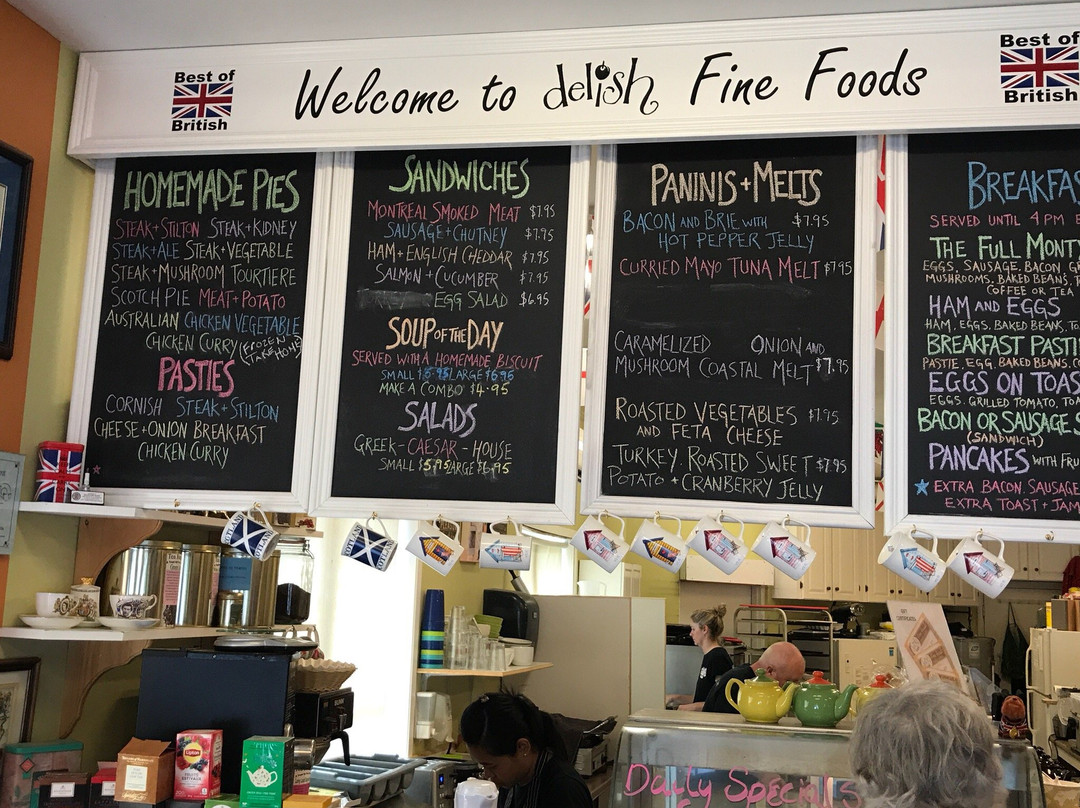 Best of
British
Welcome to delish Fine Foods
Best of
British
HOMEMADE PIES
STEAK+STILTON STEAK+KIDNEY
STEAK+ALE STEAK+VEGETABLE
STEAK+MUSHROOM TOURTIERE
SCOTCH PIE MEAT+POTATO
AUSTRALIAN CHICKEN VEGETABLE
CHICKEN CURRY (FROZEN
TAKE HOME)
PASTIES
CORNISH STEAK+STILTON
CHEESE+ONION BREAKFAST
CHICKEN CURRY
SANDWICHES
MONTREAL SMOKED MEAT $7.95
SAUSAGE+CHUTNEY $7.95
HAM+ENGLISH CHEDDAR $7.95
SALMON+CUCUMBER $7.95
EGG SALAD $6.95
SOUP OF THE DAY
SERVED WITH A HOMEMADE BISCUIT
SMALL $5.95 LARGE $6.95
MAKE A COMBO $4.95
SALADS
GREEK-CAESAR-HOUSE
SMALL $5.95 LARGE $6.95
PANINIS+MELTS
BACON AND BRIE WITH $7.95
HOT PEPPER JELLY
CURRIED MAYO TUNA MELT $7.95
CARAMELIZED ONION AND
MUSHROOM COASTAL MELT $7.95
ROASTED VEGETABLES $7.95
AND FETA CHEESE
TURKEY. ROASTED SWEET $7.95
POTATO + CRANBERRY JELLY
BREAKFAS
SERVED UNTIL 4PM E
THE FULL MONT
EGGS, SAUSAGE, BACON, G
MUSHROOMS, BAKED BEANS, T
COFFEE OR TEA
HAM AND EGGS
HAM, EGGS, BAKED BEANS, TO
BREAKFAST PASTI
PASTIE, EGG, BAKED BEANS, C
EGGS ON TOAS
EGGS, GRILLED TOMATO, TOA
BACON OR SAUSAGE S
(SANDWICH)
PANCAKES WITH FRU
EXTRA BACON, SAUSAGE
EXTRA TOAST + JAM
Lipton
Daily Specials